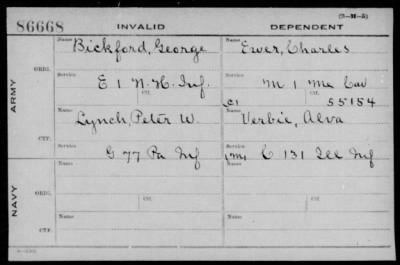 (3-M-5)
86668 INVALID DEPENDENT
Name Bickford, George Name Ewer, Charles
ORIG.
Service E 1 N. H. Inf. Service M 1 Me Cav
Ctf. Ctf.
C1 55154
ARMY
Name Lynch, Peter W. Name Verbie, Alva
CTF.
Service G 77 Pa Inf Service C 131 Ill Inf
Name Name
ORIG.
Service Ctf. Service Ctf.
NAVY
Name Name
CTF.
Service Service